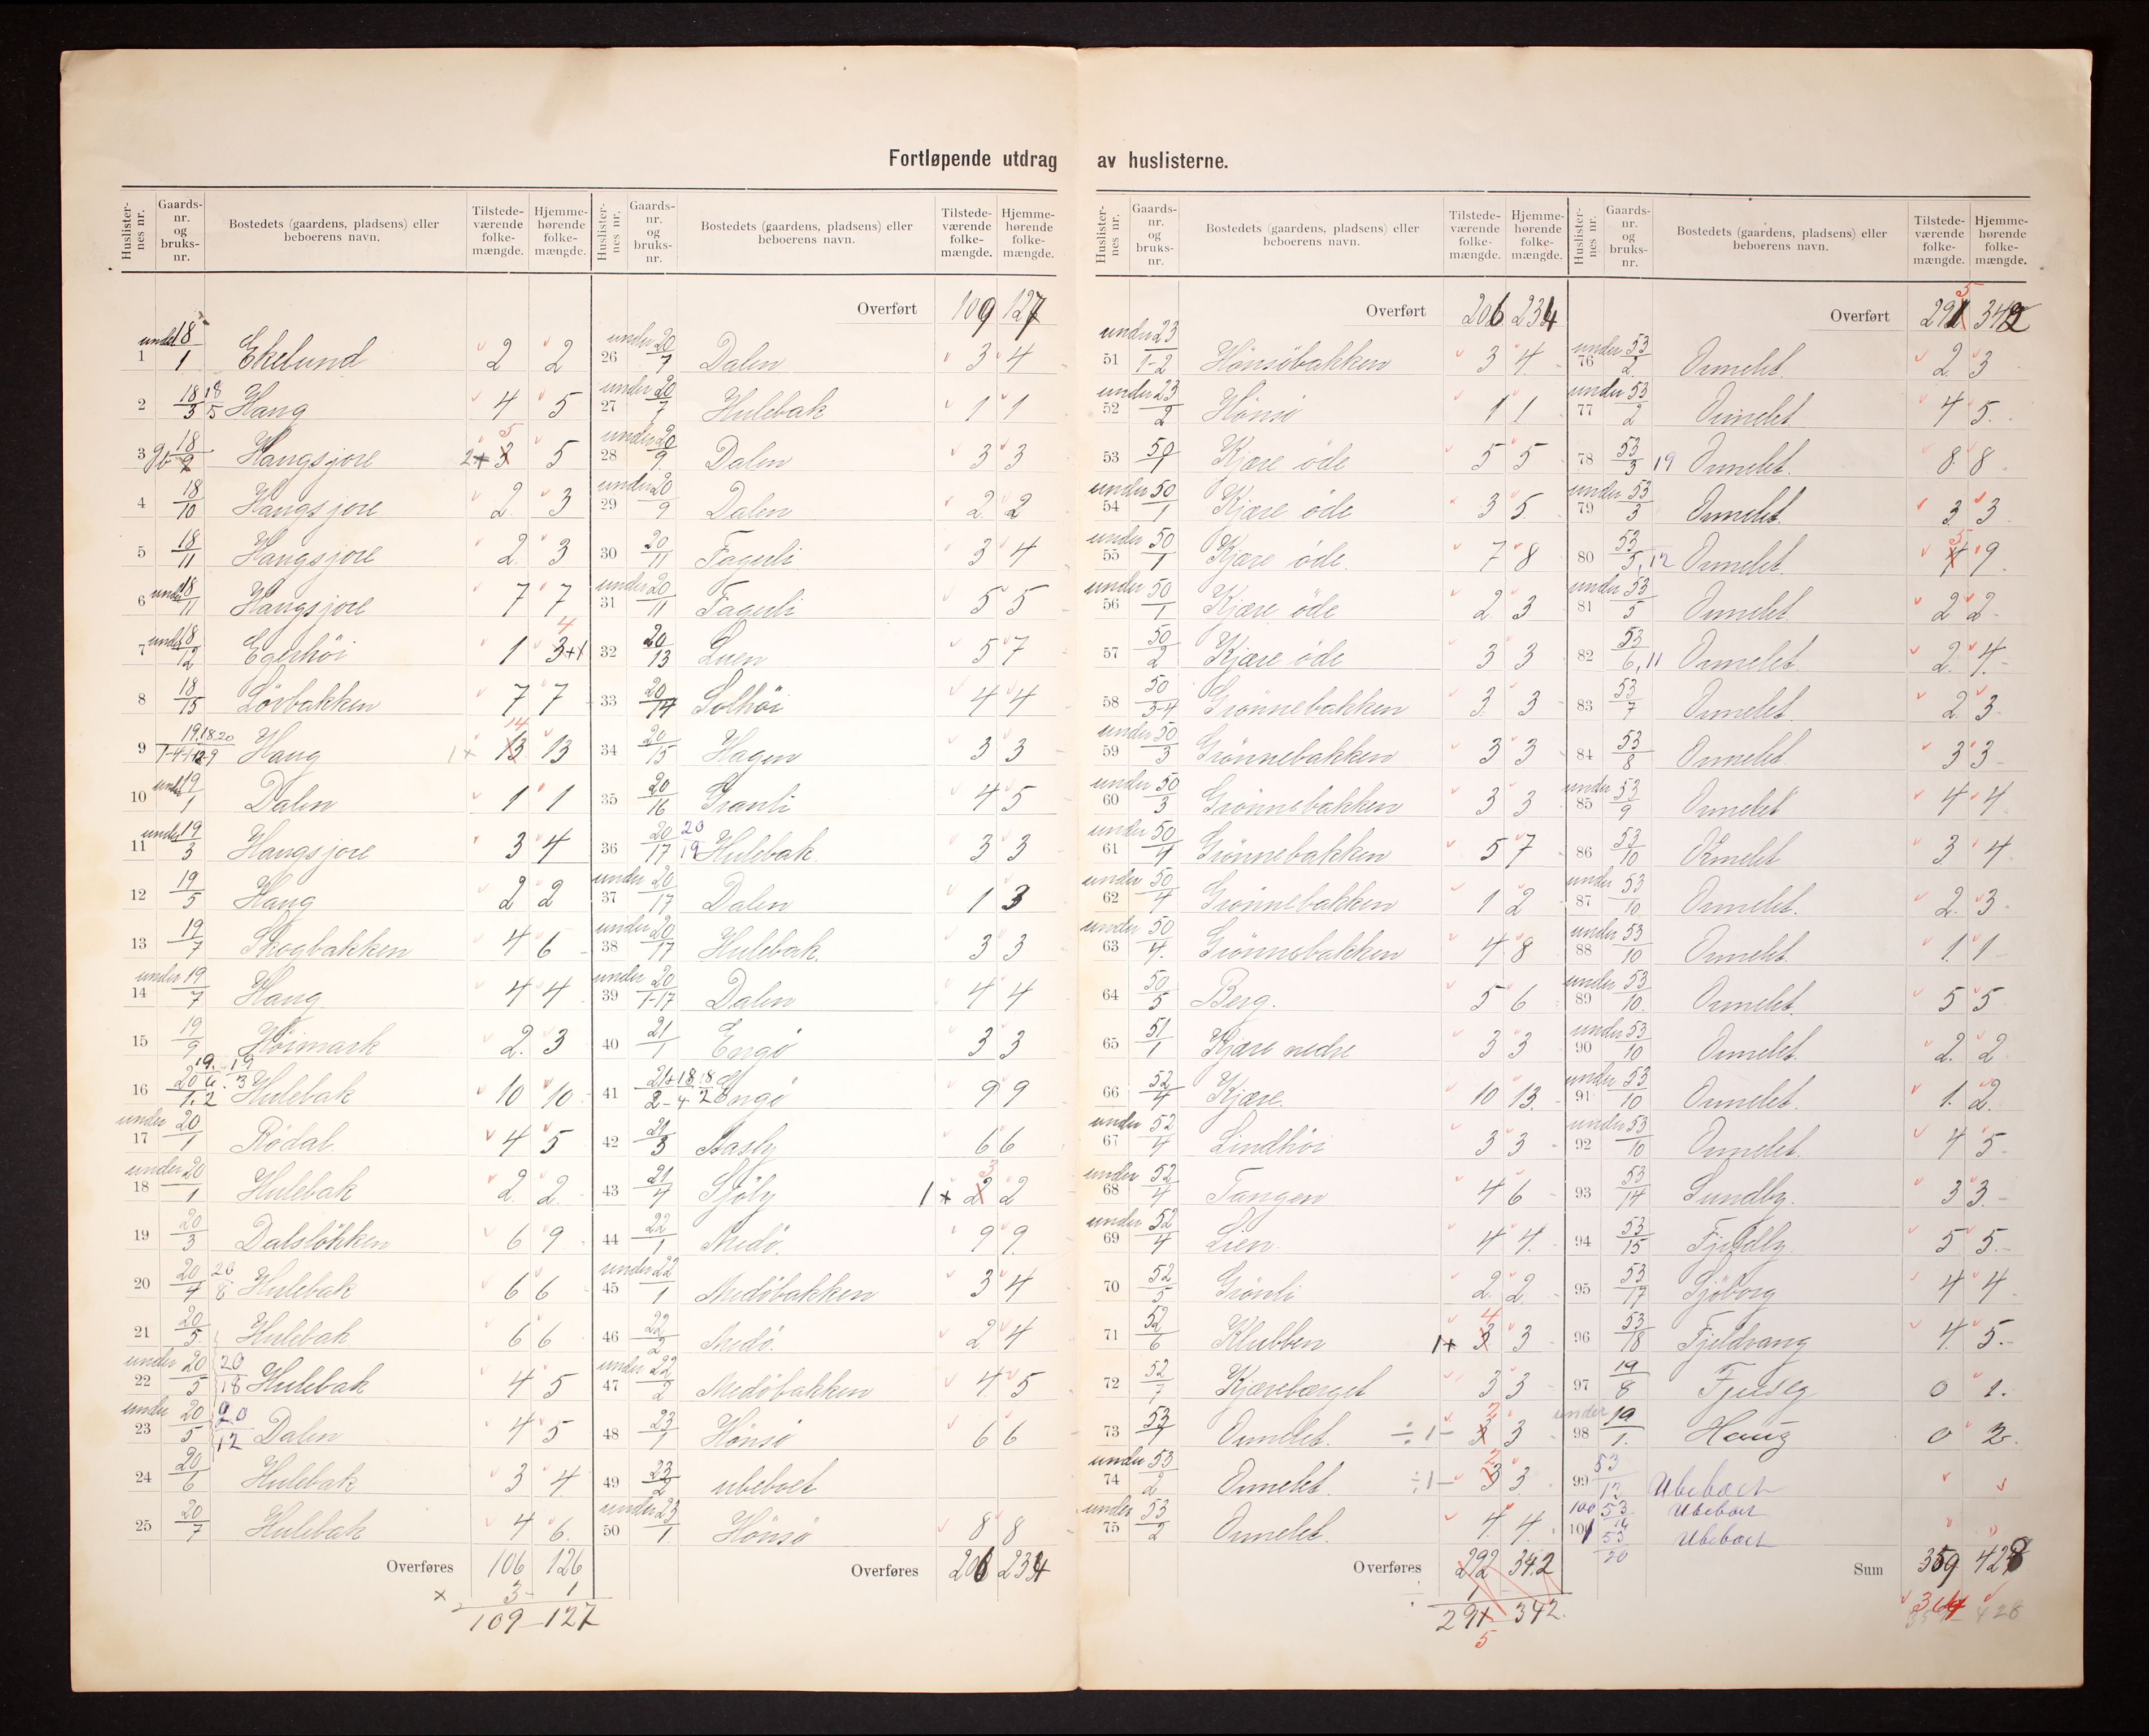 Fortløpende utdrag av huslisterne.
Huslisternes nr. Gaards-nr. og bruks-nr. Bostedets (gaardens, pladsens) eller beboerens navn. Tilstedeværende folkemængde. Hjemmehørende folkemængde.
1 under 18/1 Ekelund 2 2
2 18/3 18/5 Haug 4 5
3 18/9 Haugsjore 2+ 3 5 5
4 18/10 Haugsjore 2 3
5 18/11 Haugsjore 2 3
6 under 18/11 Haugsjore 7 7
7 under 18/12 Egerhöi 1 3+1 4
8 18/15 Lövbakken 7 7
9 19.18.20 Haug 1+ 13 14 13
10 under 19/1 Dalen 1 1
11 under 19/3 Haugsjore 3 4
12 19/5 Haug 2 2
13 19/7 Skogbakken 4 6
14 under 19/7 Haug 4 4
15 19/9 Höimark 2 3
16 20/1.2 19/6 19/3 Hulebak 10 10
17 under 20/1 Rödal 4 5
18 under 20/1 Hulebak 2 2
19 20/3 Dalslökken 6 9
20 20/4 20/8 Hulebak 6 6
21 20/5 Hulebak 6 6
22 under 20/5 20/18 Hulebak 4 5
23 under 20/5 20/12 Dalen 4 5
24 20/6 Hulebak 3 4
25 20/7 Hulebak 4 6
Overføres 106 126
+ 3 - 1
109 - 127
Huslisternes nr. Gaards-nr. og bruks-nr. Bostedets (gaardens, pladsens) eller beboerens navn. Tilstedeværende folkemængde. Hjemmehørende folkemængde.
Overført 109 127
26 under 20/7 Dalen 3 4
27 under 20/7 Hulebak 1 1
28 under 20/9 Dalen 3 3
29 under 20/9 Dalen 2 2
30 20/11 Fagerli 3 4
31 under 20/11 Fagerli 5 5
32 20/13 Luen 5 7
33 20/14 Solhöi 4 4
34 20/15 Hagen 3 3
35 20/16 Granli 4 5
36 20/17 20/19 Hulebak 3 3
37 under 20/17 Dalen 1 3
38 under 20/17 Hulebak 3 3
39 under 20/1-17 Dalen 4 4
40 21/1 Engö 3 3
41 21+18/2-4 18/26 Engö 9 9
42 21/3 Aasly 6 6
43 21/4 Sjöly 1+ 2 3 2
44 22/1 Medö 9 9
45 under 22/1 Medöbakken 3 4
46 22/2 Medö 2 4
47 under 22/2 Medöbakken 4 5
48 23/1 Hönsö 6 6
49 23/2 ubeboet
50 under 23/1 Hönsö 8 8
Overføres 206 234
Huslisternes nr. Gaards-nr. og bruks-nr. Bostedets (gaardens, pladsens) eller beboerens navn. Tilstedeværende folkemængde. Hjemmehørende folkemængde.
Overført 206 234
51 under 23/1-2 Hönsöbakken 3 4
52 under 23/2 Hönsö 1 1
53 50/1 Kjære öde 5 5
54 under 50/1 Kjære öde 3 5
55 under 50/1 Kjære öde. 7 8
56 under 50/1 Kjære öde 2 3
57 50/2 Kjære öde 3 3
58 50/3-4 Grönnebakken 3 3
59 under 50/3 Grönnebakken 3 3
60 under 50/3 Grönnebakken 3 3
61 under 50/4 Grönnebakken 5 7
62 under 50/4 Grönnebakken 1 2
63 under 50/4 Grönnebakken 4 8
64 50/5 Berg. 5 6
65 51/1 Kjære nedre 3 3
66 52/4 Kjære. 10 13
67 under 52/4 Lindhöi 3 3
68 under 52/4 Tangen 4 6
69 under 52/4 Lien 4 4
70 52/5 Grönli 2 2
71 52/6 Klubben 1+ 3 4 3
72 52/7 Kjæreberget 3 3
73 53/1 Ormelet. ÷1- 3 2 3
74 under 53/2 Ormelet. ÷1- 3 2 3
75 under 53/2 Ormelet. 4 4
Overføres 292 342
÷ 1
291 342
5
Huslisternes nr. Gaards-nr. og bruks-nr. Bostedets (gaardens, pladsens) eller beboerens navn. Tilstedeværende folkemængde. Hjemmehørende folkemængde.
Overført 291 5 342
76 under 53/2 Ormelet 2 3
77 under 53/2 Ormelet 4 5
78 53/3 19 Ormelet. 8 8
79 under 53/3 Ormelet. 3 3
80 53/5,12 Ormelet. 4 5 9
81 under 53/5 Ormelet. 2 2
82 53/6,11 Ormelet 2 4
83 53/7 Ormelet. 2 3
84 53/8 Ormelet 3 3
85 under 53/9 Ormelet 4 4
86 53/10 Ormelet 3 4
87 under 53/10 Ormelet. 2 3
88 under 53/10 Ormelet 1 1
89 under 53/10 Ormelet. 5 5
90 under 53/10 Ormelet. 2 2
91 under 53/10 Ormelet. 1 2
92 under 53/10 Ormelet. 4 5
93 53/14 Sundby. 3 3
94 53/15 Fjeldly. 5 5
95 53/17 Sjöborg 4 4
96 53/18 Fjeldvang 4 5
97 19/8 Fjeldly 0 1.
98 under 19/1 Haug 0 2.
99 53/12 Ubeboet
100 53/16 Ubeboet
101 53/20 Ubeboet
Sum 359 428
364 428